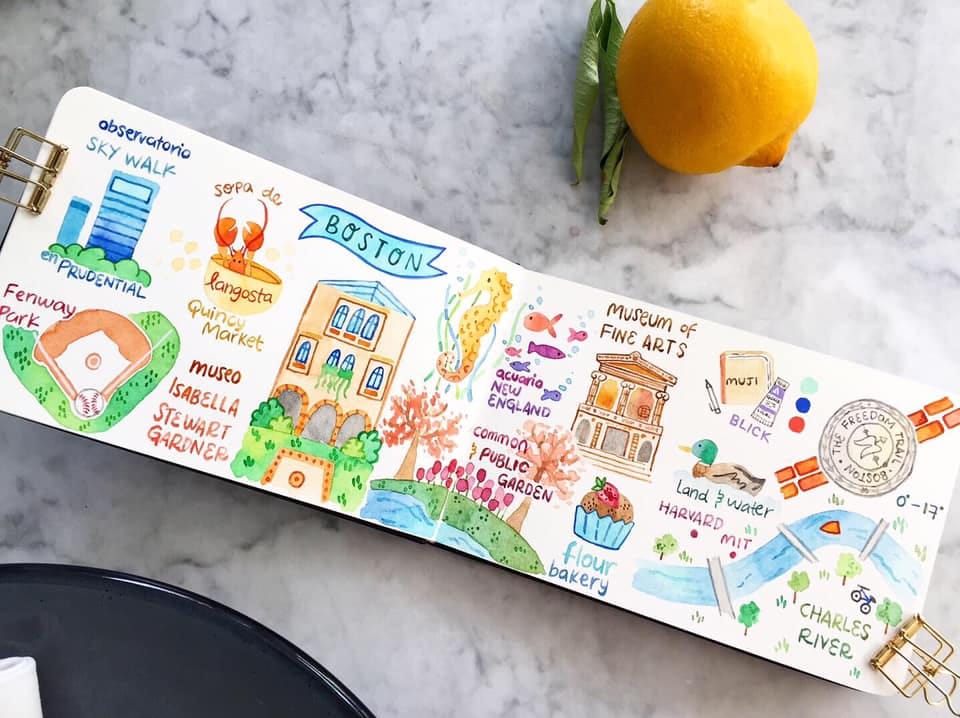 observatorio
SKY WALK
en PRUDENTIAL
Fenway
Park
sopa de
langosta
Quincy
Market
museo
ISABELLA
STEWART
GARDNER
BOSTON
acuario
NEW
ENGLAND
common
& PUBLIC
GARDEN
MUSEUM OF
FINE ARTS
flour
bakery
MUJI
BLICK
land & water
HARVARD
MIT
THE FREEDOM TRAIL
BOSTON
0°-17°
CHARLES
RIVER